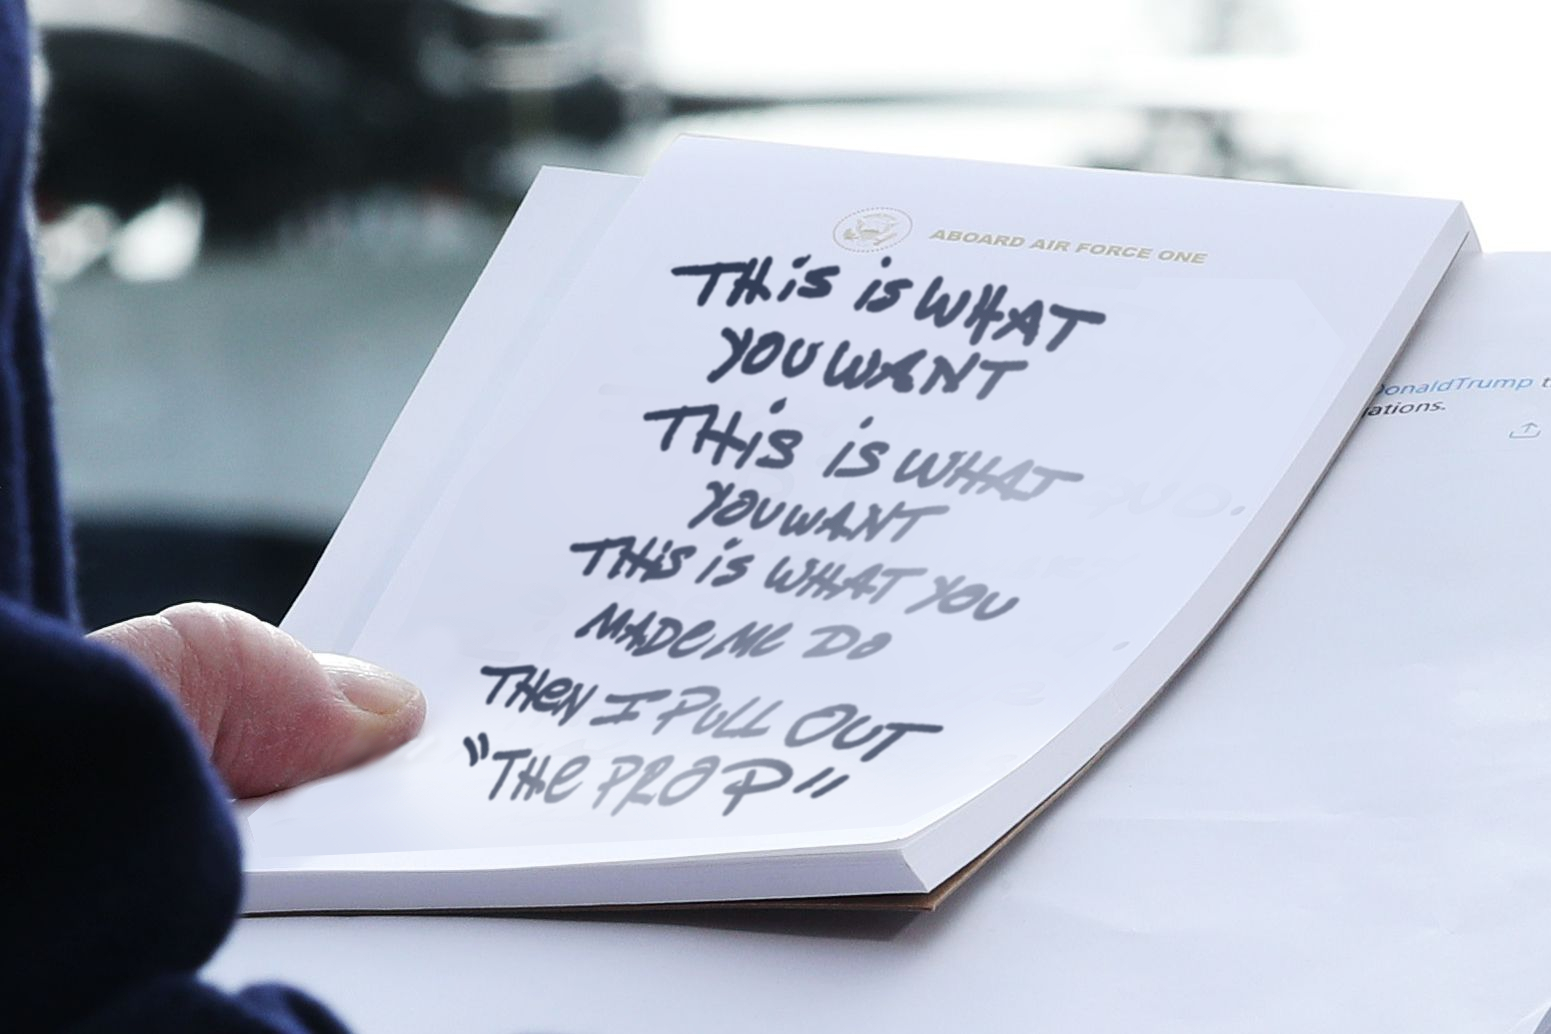 ABOARD AIR FORCE ONE
THiS iS WHAT
YOU WANT
THiS iS WHAT
YOU WANT
THiS iS WHAT YOU
MADe Me DO
THeN I PULL OUT
"THe PROP"
onaldTrump
ations.